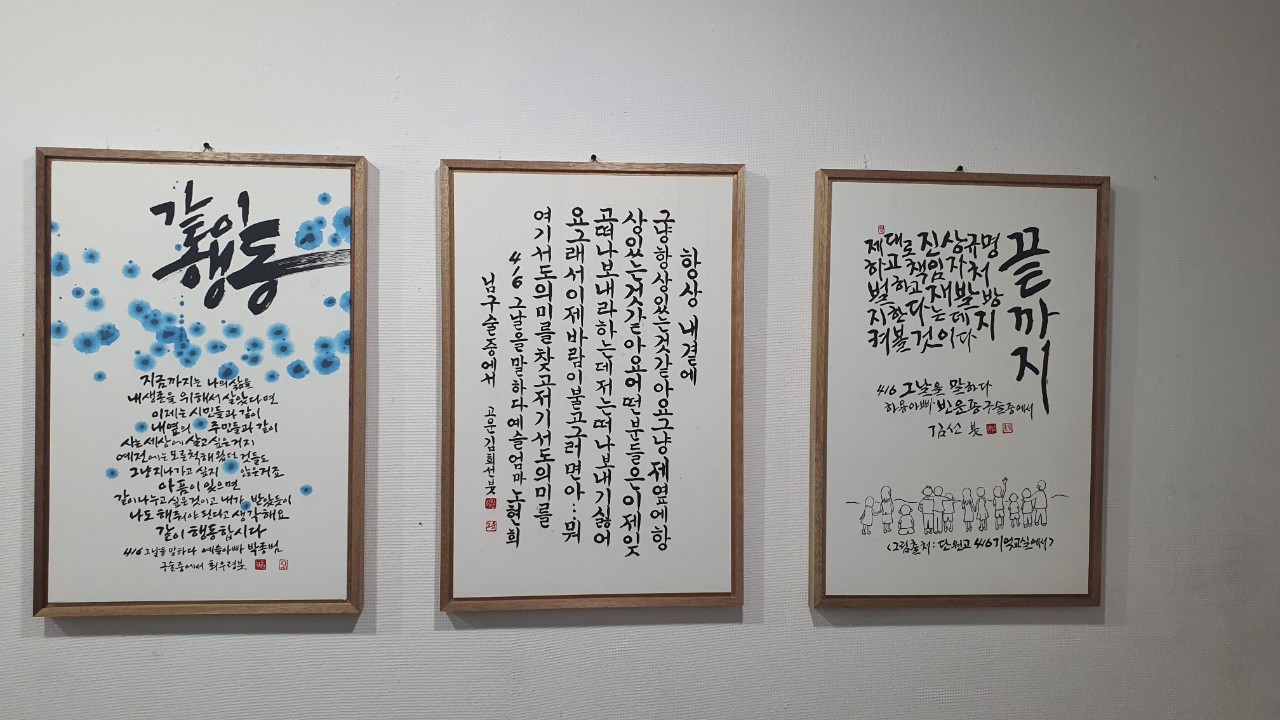 같이
행동
지금까지는 나의 삶을
내 생존을 위해서 살았다면
이제는 시민들과 같이
내 옆의 주민들과 같이
사는 세상에 살고 싶은 거지
예전에는 모른척 해왔던 것들도
그냥 지나가고 싶지 않은거죠
아픔이 있으면
같이 나누고 싶은 것이고 내가 받았듯이
나도 해줘야 된다고 생각해요
같이 행동합시다
416 그날을 말하다 예슬아빠 박종범
구술중에서 최우정붓
항상 내곁에
그냥 항상 있는것 같아요 그냥 제 옆에 항
상 있는 것 같아요 어떤 분들은 이제 잊
고 떠나보내라 하는데 저는 떠나보내기 싫어
요 그래서 이제 바람이 불고 그러면 아… 뭐
여기서도 의미를 찾고 저기서도 의미를
4/6 그날을 말하다 예슬엄마 노현희
님 구술중에서 고운 김희선 붓
끝까지
제대로 진상규명
하고 책임자 처
벌 하고 재발 방
지한다는데 지
켜볼 것이다
4/6 그날을 말하다
하용아빠 빈운종 구술중에서
김선 붓
<그림출처: 단원고 4/6 기억교실에서>